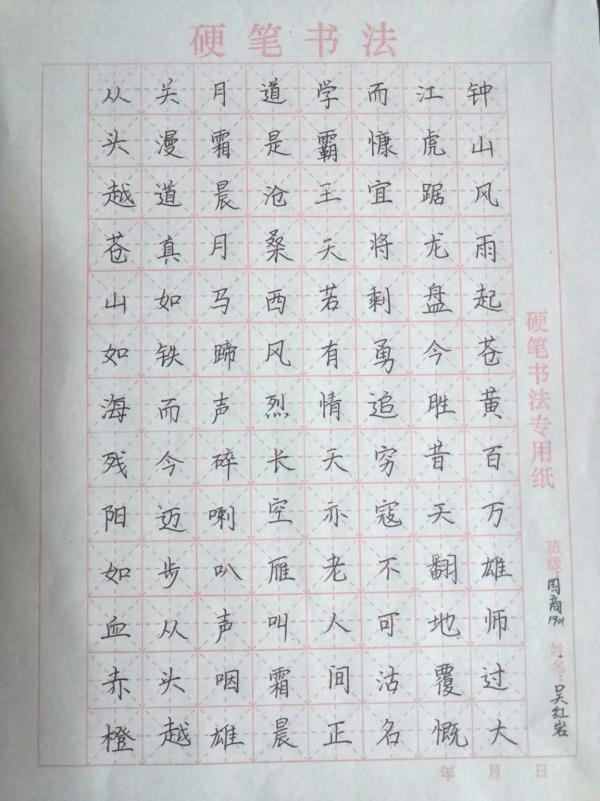 硬笔书法
钟山风雨起苍黄百万雄师过大
江虎踞龙盘今胜昔天翻地覆慨
而慷宜将剩勇追穷寇不可沽名
学霸王天若有情天亦老人间正
道是沧桑西风烈长空雁叫霜晨
月霜晨月马蹄声碎喇叭声咽雄
关漫道真如铁而今迈步从头越
从头越苍山如海残阳如血赤橙
硬笔书法专用纸
班级：国商1901 姓名：吴红岩
年 月 日